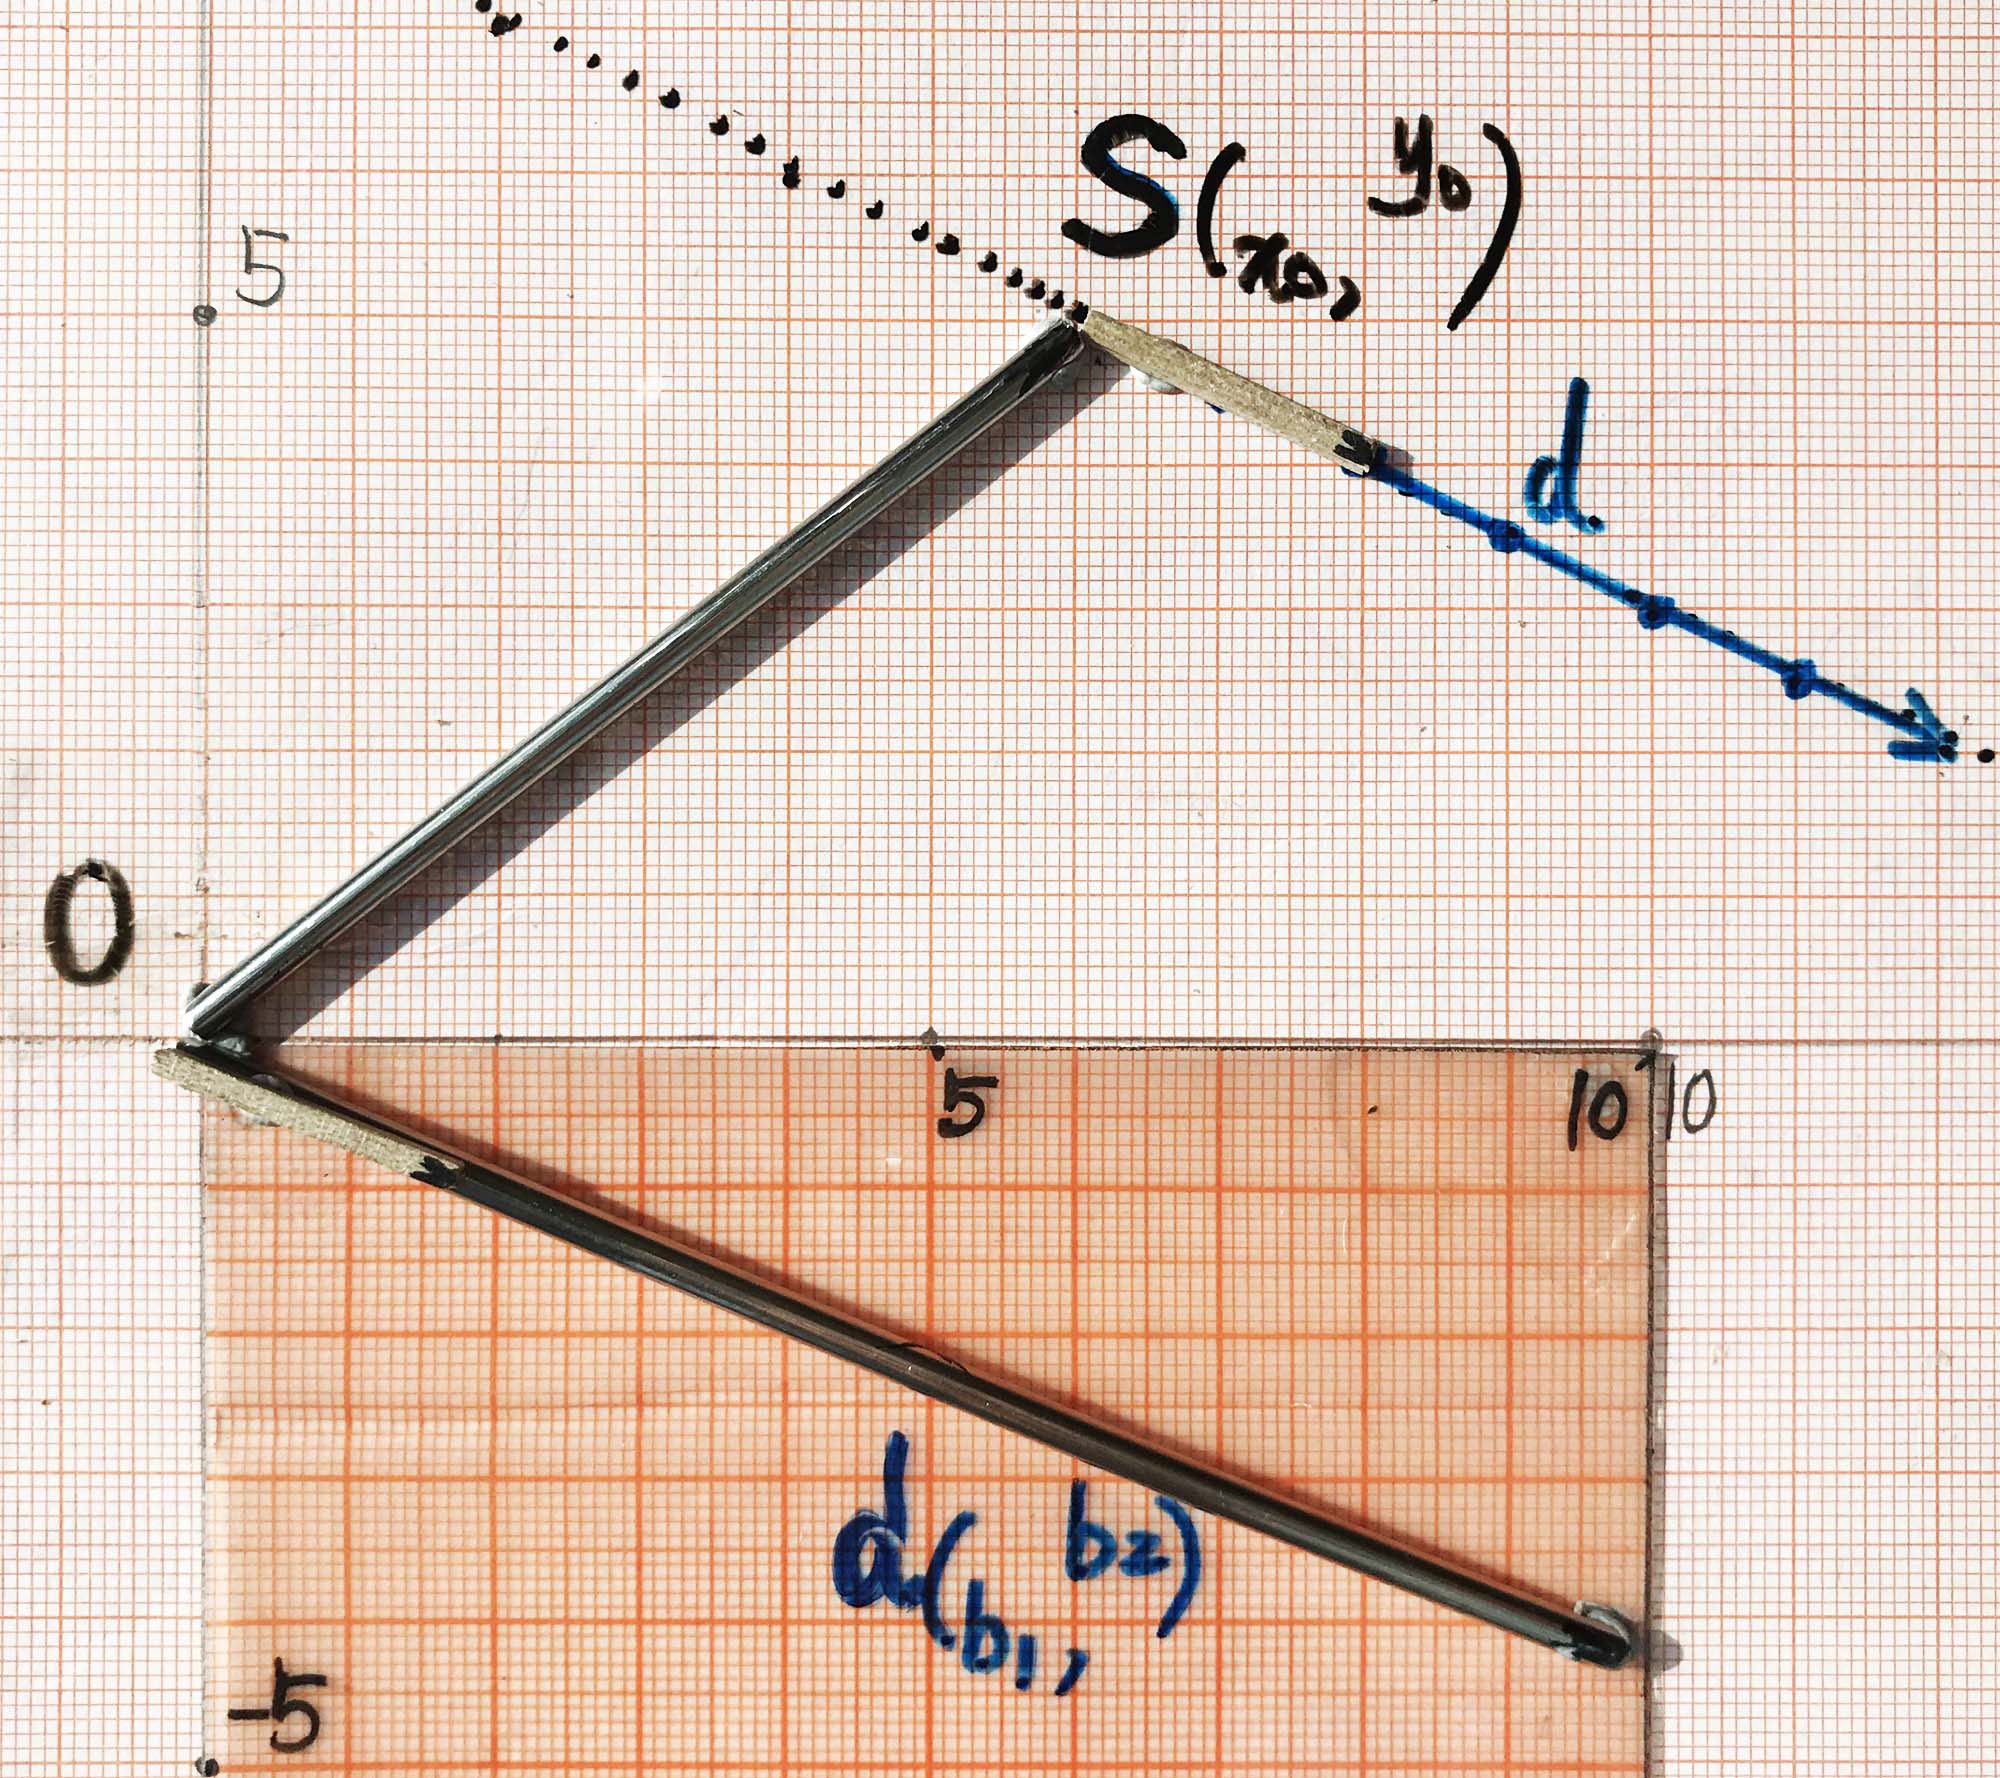 S(x₀, y₀)
5
d.
0
5
10
10
d.(b₁, b₂)
-5